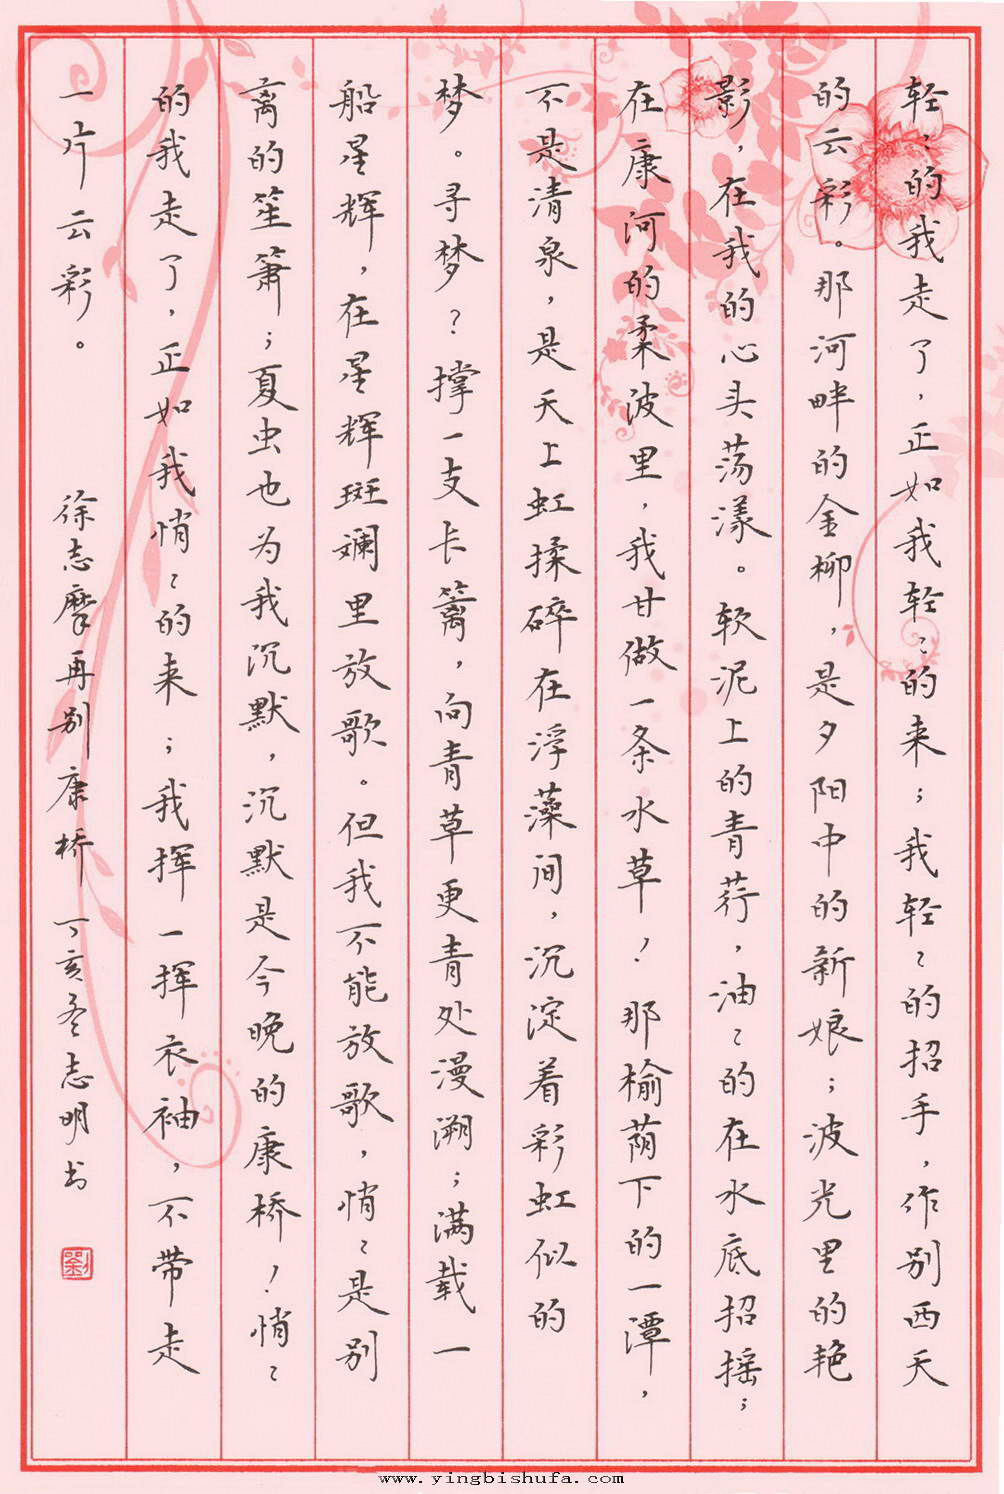 轻〻的我走了，正如我轻〻的来；我轻〻的招手，作别西天
的云彩。那河畔的金柳，是夕阳中的新娘；波光里的艳
影，在我的心头荡漾。软泥上的青荇，油〻的在水底招摇；
在康河的柔波里，我甘做一条水草！那榆荫下的一潭，
不是清泉，是天上虹揉碎在浮藻间，沉淀着彩虹似的
梦。寻梦？撑一支长篙，向青草更青处漫溯；满载一
船星辉，在星辉斑斓里放歌。但我不能放歌，悄〻是别
离的笙箫；夏虫也为我沉默，沉默是今晚的康桥！悄〻
的我走了，正如我悄〻的来；我挥一挥衣袖，不带走
一片云彩。 徐志摩再别康桥 丁亥冬志明书
劉
www.yingbishufa.com